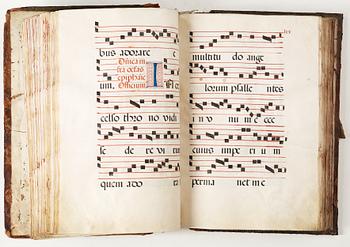 bus adorare
Dñica in
fra octas
epiphāie
um. Officium I
celso thro no vidi
se de re vi rum
quem ado ra
multitu do ange
lorum psalle ntes
in v nu m: e cce
cuius impe ri u m
perma net in e